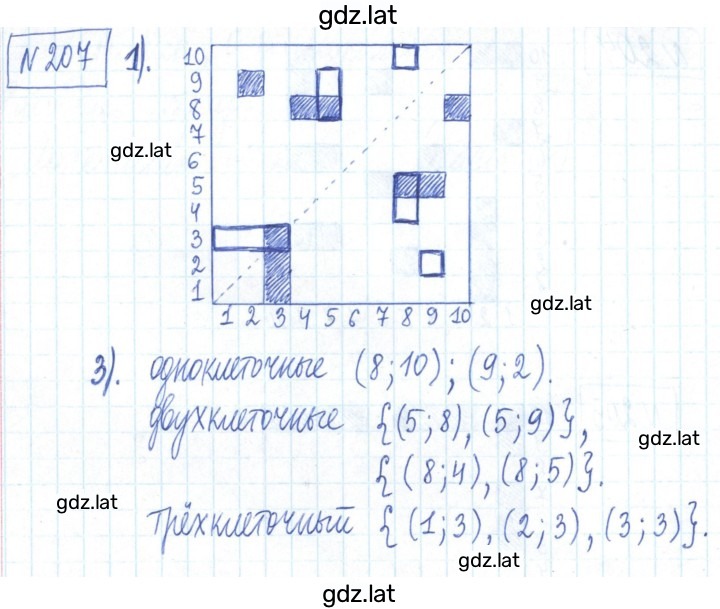 gdz.lat
№ 207 1).
10
9
8
7
6
5
4
3
2
1
1 2 3 4 5 6 7 8 9 10
gdz.lat
gdz.lat
3). одноклеточные (8;10); (9;2).
двухклеточные {(5;8), (5;9)},
gdz.lat
{(8;4), (8;5)}.
gdz.lat
трёхклеточный {(1;3), (2;3), (3;3)}.
gdz.lat
gdz.lat